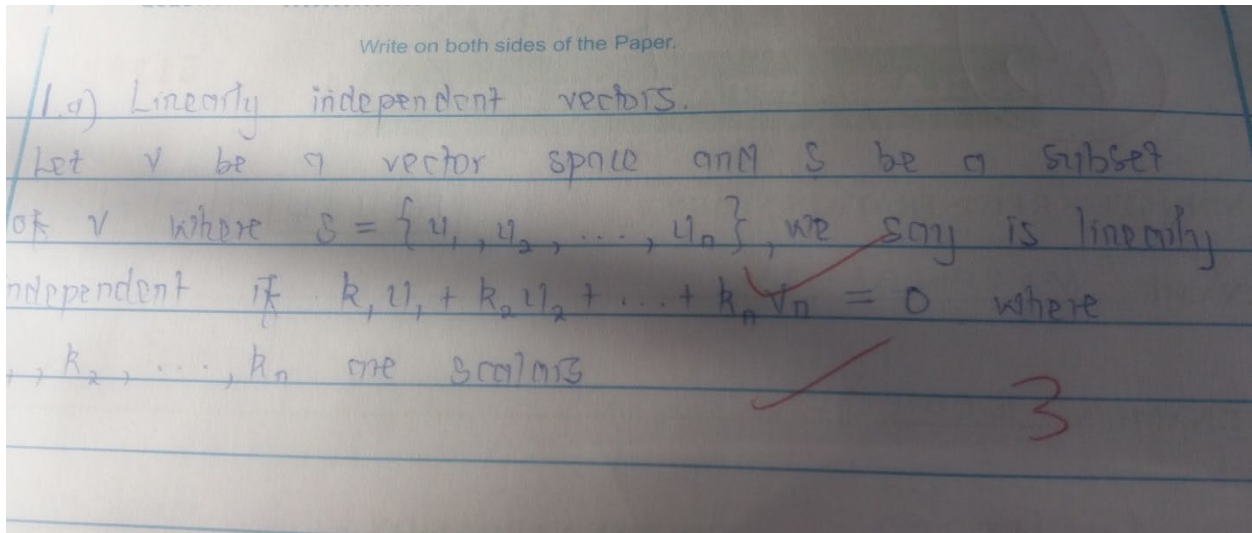 Write on both sides of the Paper.
1.a) Linearly independent vectors.
Let V be a vector space and S be a subset
of V where S = {u₁, u₂, ..., uₙ}, we say is linearly
ndependent if k₁u₁ + k₂u₂ + ... + kₙvₙ = 0 where
, k₂, ..., kₙ are scalars
3